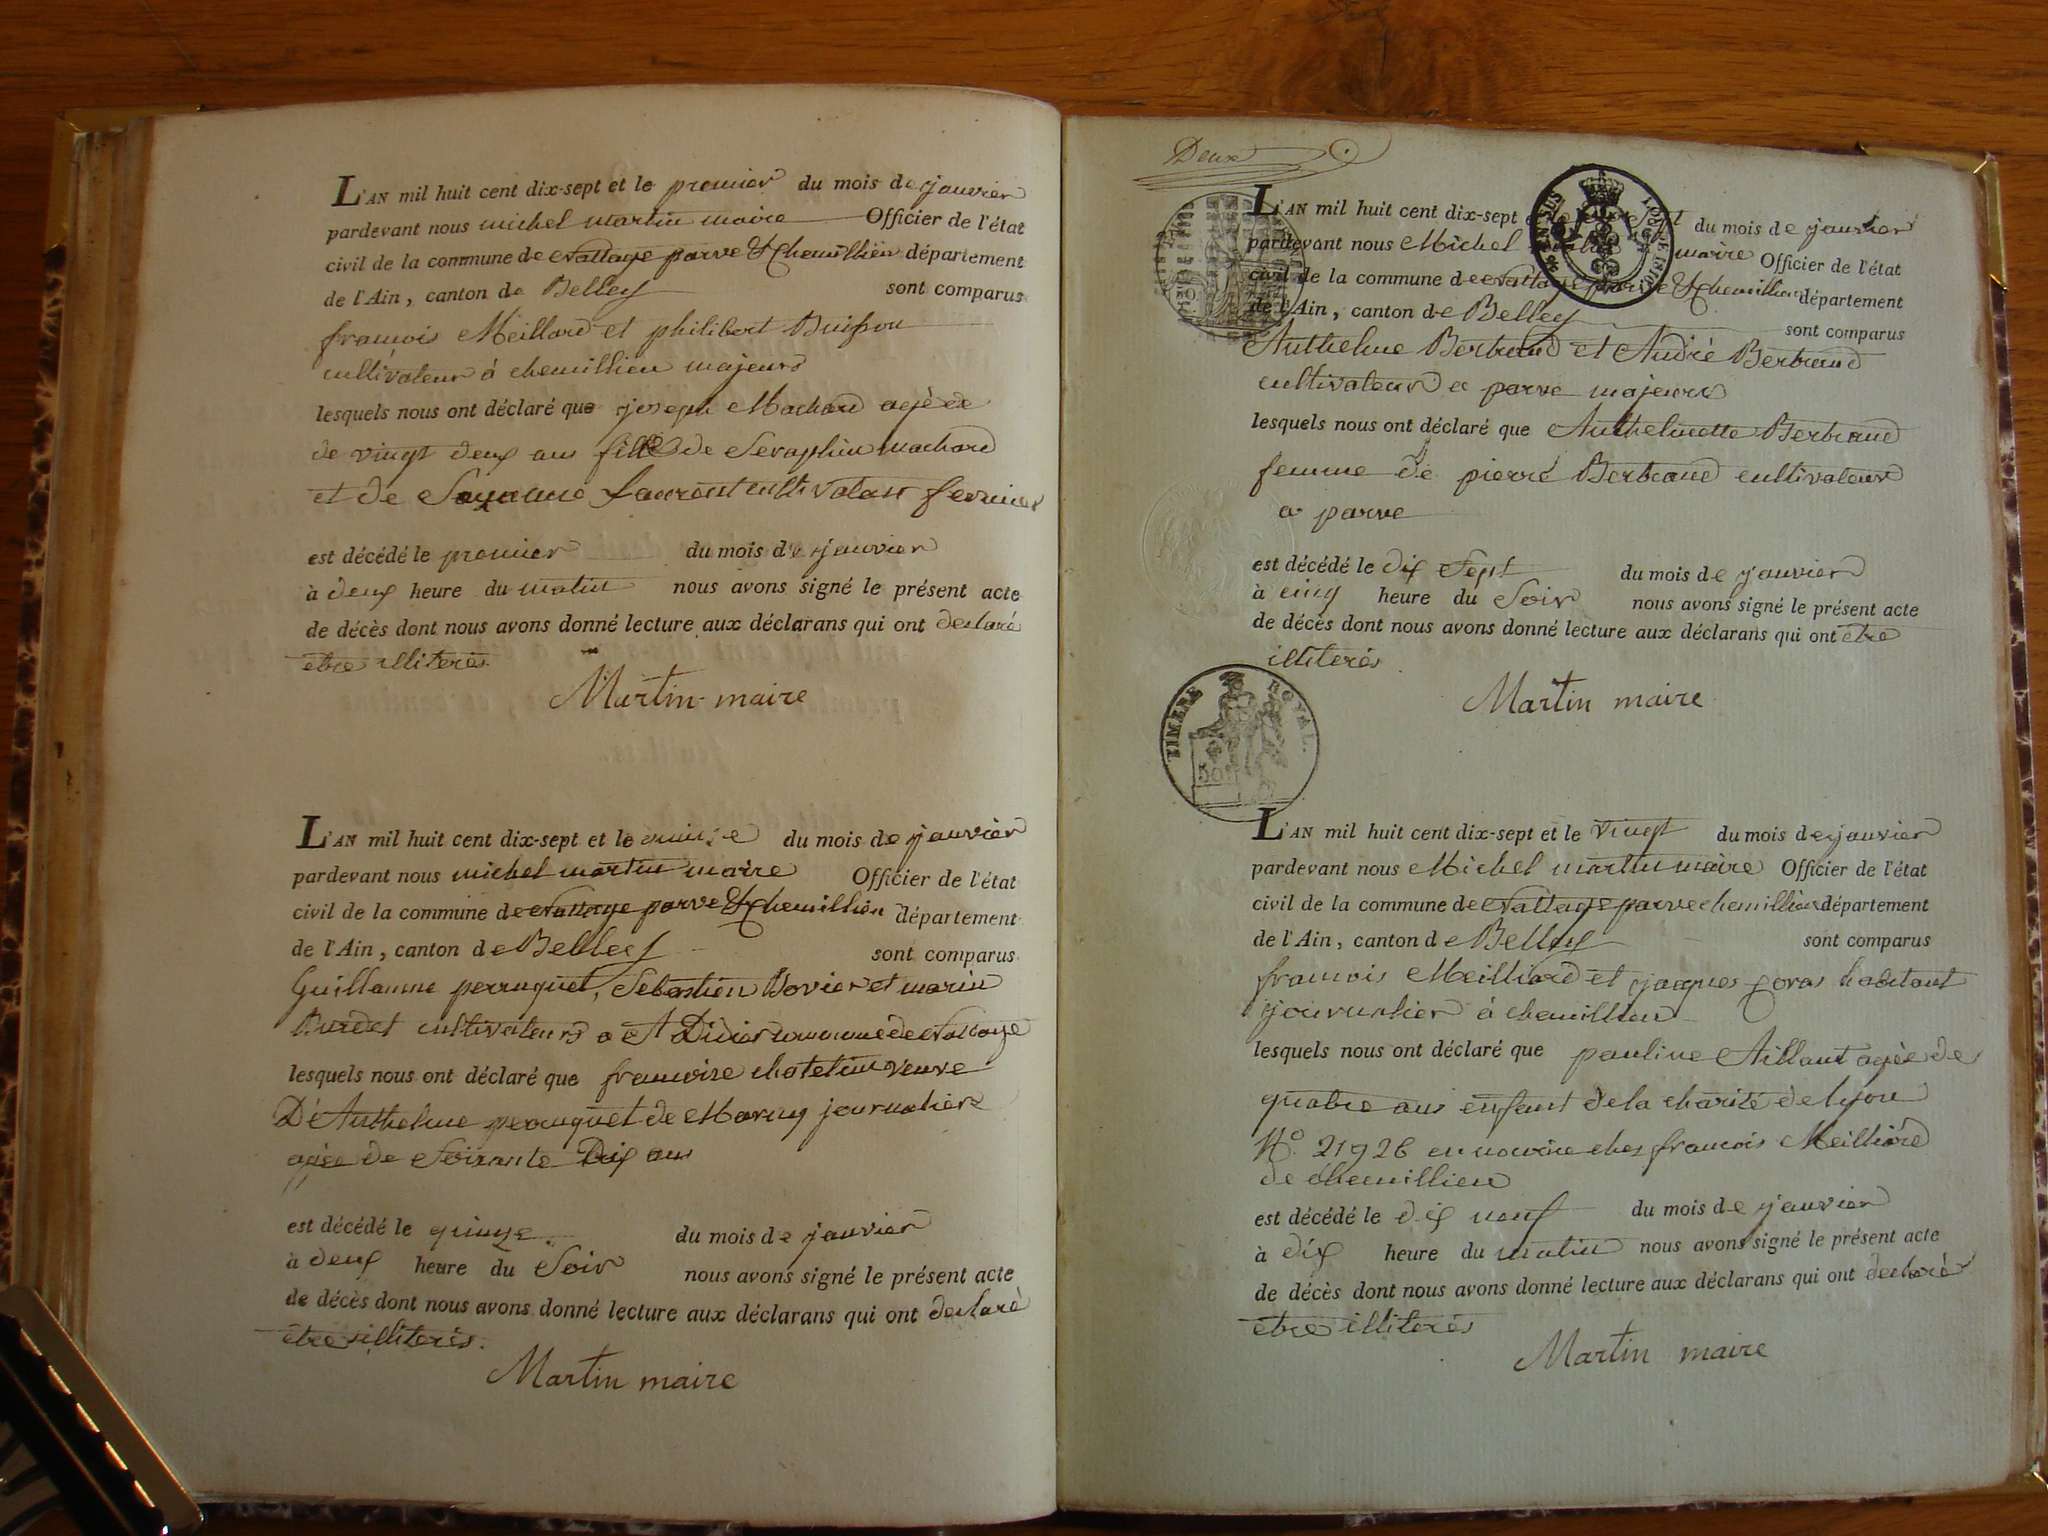 L'AN mil huit cent dix-sept et le premier du mois de janvier
pardevant nous michel martin maire Officier de l'état
civil de la commune de parve & chemillieu département
de l'Ain, canton de Belley sont comparus
francois Meillard et philibert Buisson
cultivateur à chemillieu majeurs
lesquels nous ont déclaré que joseph Machard agé
de vingt deux ans de Seraphin machard
et de cultivateur
est décédé le premier du mois de janvier
à deux heure du matin nous avons signé le présent acte
de décès dont nous avons donné lecture aux déclarans qui ont declaré
etre illiterés
Martin maire
L'AN mil huit cent dix-sept et le quinze du mois de janvier
pardevant nous michel martin maire Officier de l'état
civil de la commune de parve & chemillieu département
de l'Ain, canton de Belley sont comparus
Guillaume perruquet, Sebastien Bovier et marin
Burdet cultivateurs a St Didier commune de
lesquels nous ont déclaré que francoise chatelain veuve
D'Anthelme perruquet de journaliere
agée de Soixante Dix ans
est décédé le quinze du mois de janvier
à deux heure du Soir nous avons signé le présent acte
de décès dont nous avons donné lecture aux déclarans qui ont declaré
etre illiterés.
Martin maire
Deux
L'AN mil huit cent dix-sept et le dix sept du mois de janvier
pardevant nous Michel martin maire Officier de l'état
civil de la commune de parve & chemillieu département
de l'Ain, canton de Belley
sont comparus
Anthelme Bertrand et André Bertrand
cultivateurs a parve majeurs
lesquels nous ont déclaré que Anthelmette Bertrand
femme de pierre Bertrand cultivateur
a parve
est décédé le dix Sept du mois de janvier
à cinq heure du Soir nous avons signé le présent acte
de décès dont nous avons donné lecture aux déclarans qui ont etre
illiterés
Martin maire
TIMBRE ROYAL.
L'AN mil huit cent dix-sept et le vingt du mois de janvier
pardevant nous Michel martin maire Officier de l'état
civil de la commune de parve chemillieu département
de l'Ain, canton de Belley sont comparus
francois Meilliard et jacques habitant
journalier à chemillieu
lesquels nous ont déclaré que pauline Aillaut agée de
quatre ans enfant de la charité de lyon
N.° 21926 en nourice chez francois Meilliard
de chemillieu
est décédé le dix neuf du mois de janvier
à dix heure du matin nous avons signé le présent acte
de décès dont nous avons donné lecture aux déclarans qui ont declaré
etre illiterés
Martin maire